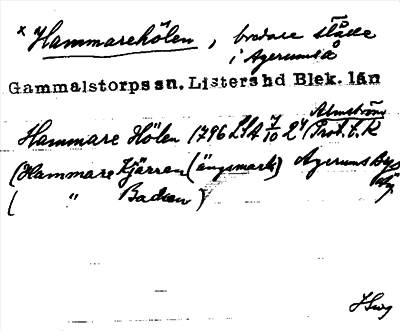 x Hammarehölen, bredare ställe
i Agerumså
Gammalstorps sn. Listers hd Blek. län
Hammare Hölen 1796 LSA 7/10 24 (Almström
Prot. t. K
(Hammare Kjärren (ängsmark) Agerums
( " Backen)